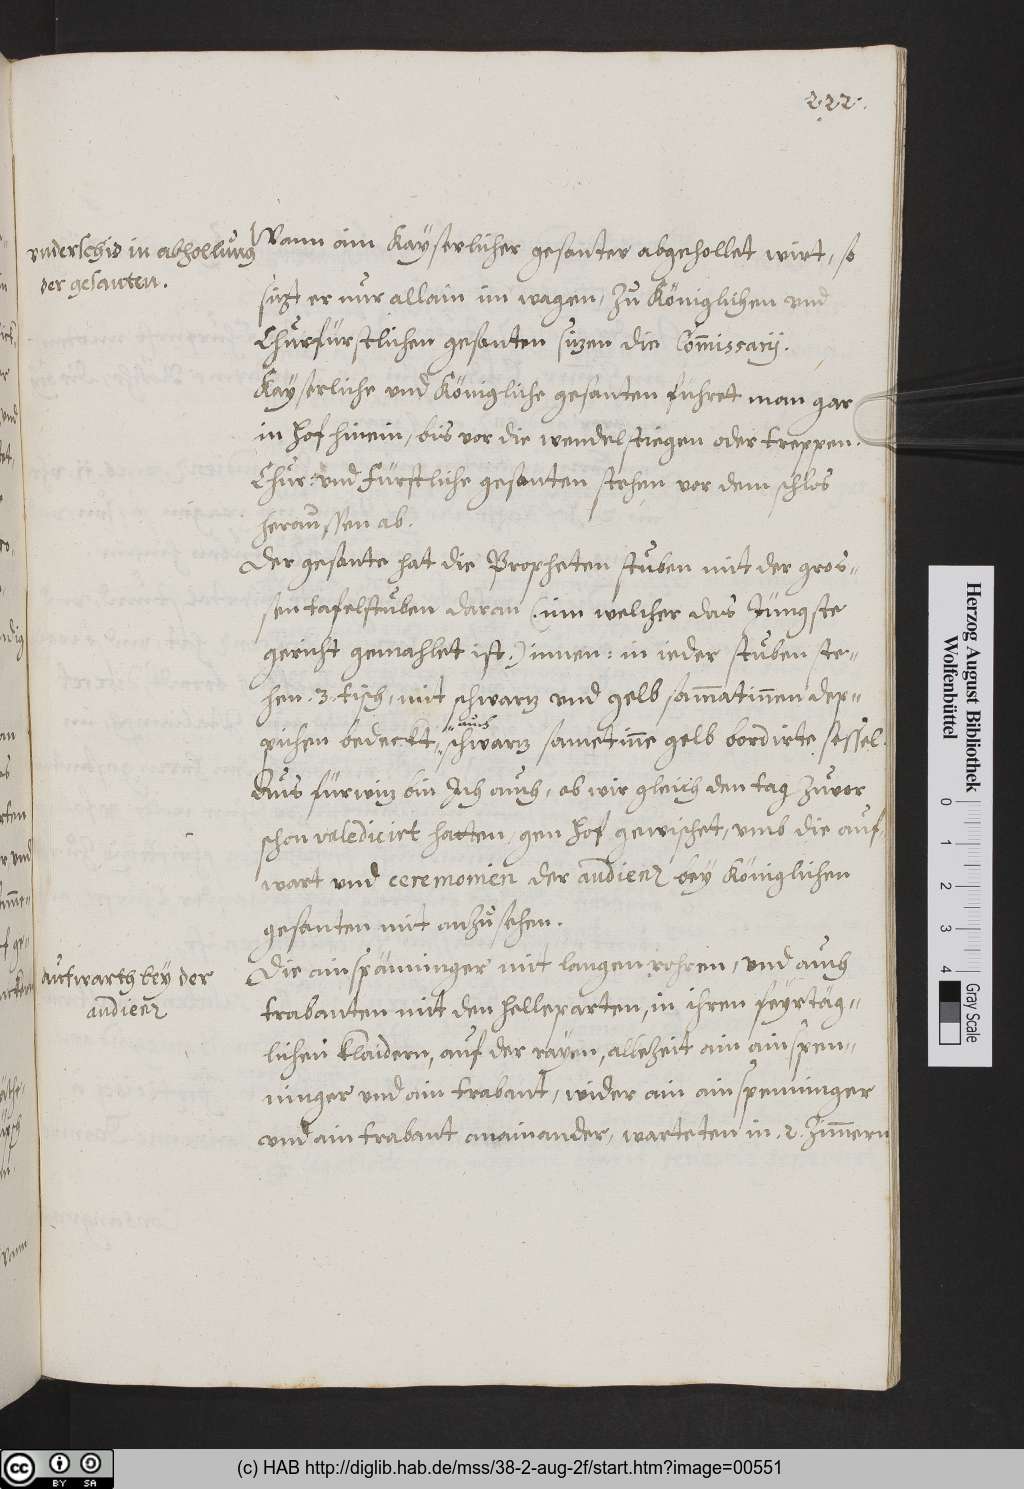 222.
vnderschid in abhollung
der gesanten.
Wann ain Kayserlicher gesanter abgehollet wirt, so
sizt er nur allain im wagen, Zu Königlichen vnd
Churfürstlichen gesanten sizen die Com̄issarij.
Kayserliche vnd Königliche gesanten führet man gar
in hof hinein, bis vor die wendelstiegen oder treppen.
Chur: vnd Fürstliche gesanten stehen vor dem schlos
heraussen ab.
Der gesante hat die Propheten stuben mit der gros=
sen tafelstuben daran (inn welcher das Jüngste
gericht gemahlet ist.) innen: in ieder stuben ste=
hen .3. tisch, mit schwarz vnd gelb sam̄atin̄en dep=
pichen bedeckt, auch schwarz sametin̄e gelb bordirte sessel.
Aus fürwiz bin Ich auch, ob wir gleich den tag Zuvor
schon valedicirt hatten, gen hof gewischet, vmb die auf=
wart vnd ceremonien der audienz bey Königlichen
gesanten mit anZusehen.
Aufwarth bey der
audienz
Die ainspänninger mit langen rohren, vnd auch
trabanten mit den helleparten, in ihren feyrtäg=
lichen klaidern, auf der rayen, alleZeit ain ainspen=
ninger vnd ain trabant, wider ain ainspenninger
vnd ain trabant anainander, warteten in .2. Zim̄ern
Herzog August Bibliothek
Wolfenbüttel
0 1 2 3 4
Gray Scale
cc BY SA
(c) HAB http://diglib.hab.de/mss/38-2-aug-2f/start.htm?image=00551